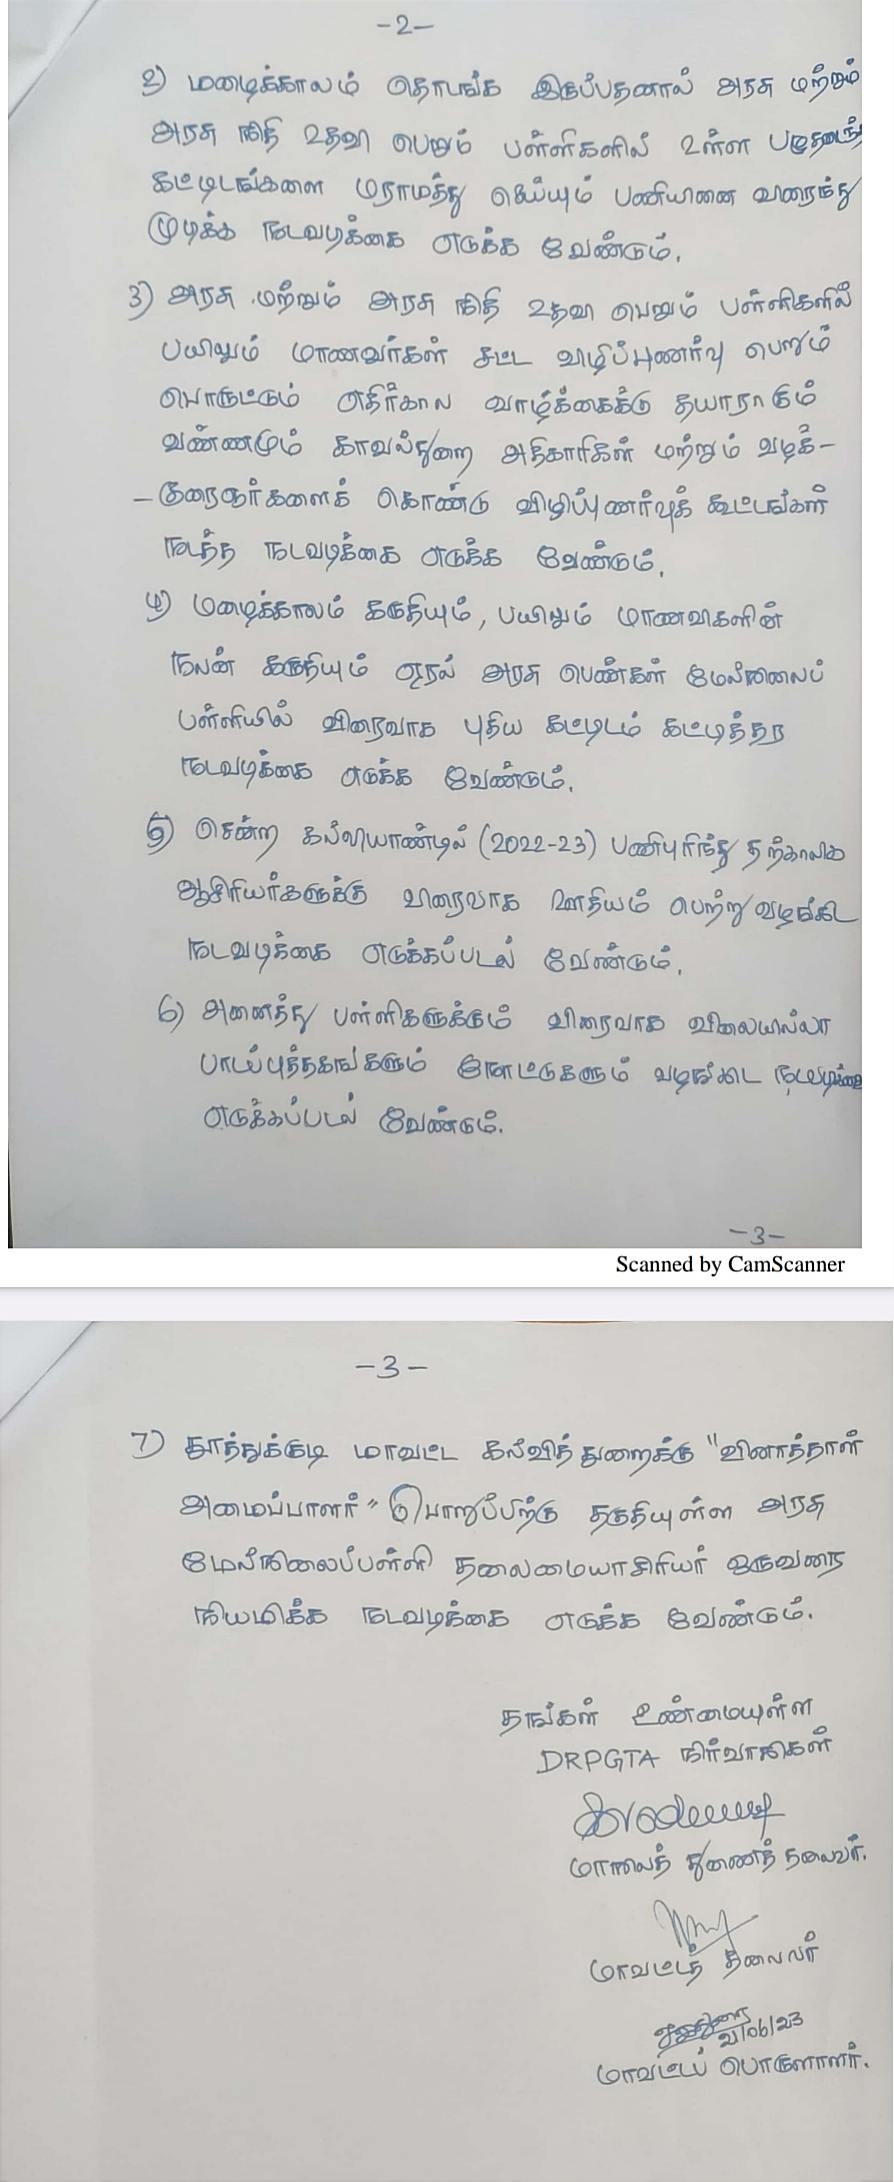 -2-
2) மழைக்காலம் தொடங்க இருப்பதனால் அரசு மற்றும்
அரசு நிதி உதவி பெறும் பள்ளிகளில் உள்ள பழுதடைந்
கட்டிடங்களை மராமத்து செய்யும் பணியினை விரைந்து
முடிக்க நடவடிக்கை எடுக்க வேண்டும்.
3) அரசு மற்றும் அரசு நிதி உதவி பெறும் பள்ளிகளில்
பயிலும் மாணவர்கள் சட்ட விழிப்புணர்வு பெறும்
பொருட்டும் எதிர்கால வாழ்க்கைக்கு தயாராகும்
வண்ணமும் காவல்துறை அதிகாரிகள் மற்றும் வழக்-
-குரைஞர்களைக் கொண்டு விழிப்புணர்வுக் கூட்டங்கள்
நடத்த நடவடிக்கை எடுக்க வேண்டும்.
4) மழைக்காலம் கருதியும், பயிலும் மாணவிகளின்
நலன் கருதியும் ஏரல் அரசு பெண்கள் மேல்நிலைப்
பள்ளியில் விரைவாக புதிய கட்டிடம் கட்டித்தர
நடவடிக்கை எடுக்க வேண்டும்.
5) சென்ற கல்வியாண்டில் (2022-23) பணிபுரிந்து தற்காலிக
ஆசிரியர்களுக்கு விரைவாக ஊதியம் பெற்று வழங்கிட
நடவடிக்கை எடுக்கப்படல் வேண்டும்.
6) அனைத்து பள்ளிகளுக்கும் விரைவாக விலையில்லா
பாடப்புத்தகங்களும் நோட்டுகளும் வழங்கிட நடவடிக்கை
எடுக்கப்படல் வேண்டும்.
-3-
Scanned by CamScanner
-3-
7) தூத்துக்குடி மாவட்ட கல்வித்துறைக்கு "வினாத்தாள்
அமைப்பாளர்" பொறுப்பிற்கு தகுதியுள்ள அரசு
மேல்நிலைப்பள்ளி தலைமையாசிரியர் ஒருவரை
நியமிக்க நடவடிக்கை எடுக்க வேண்டும்.
தங்கள் உண்மையுள்ள
DRPGTA நிர்வாகிகள்
மாநிலத் துணைத் தலைவர்.
மாவட்டத் தலைவர்
21/06/23
மாவட்டப் பொருளாளர்.